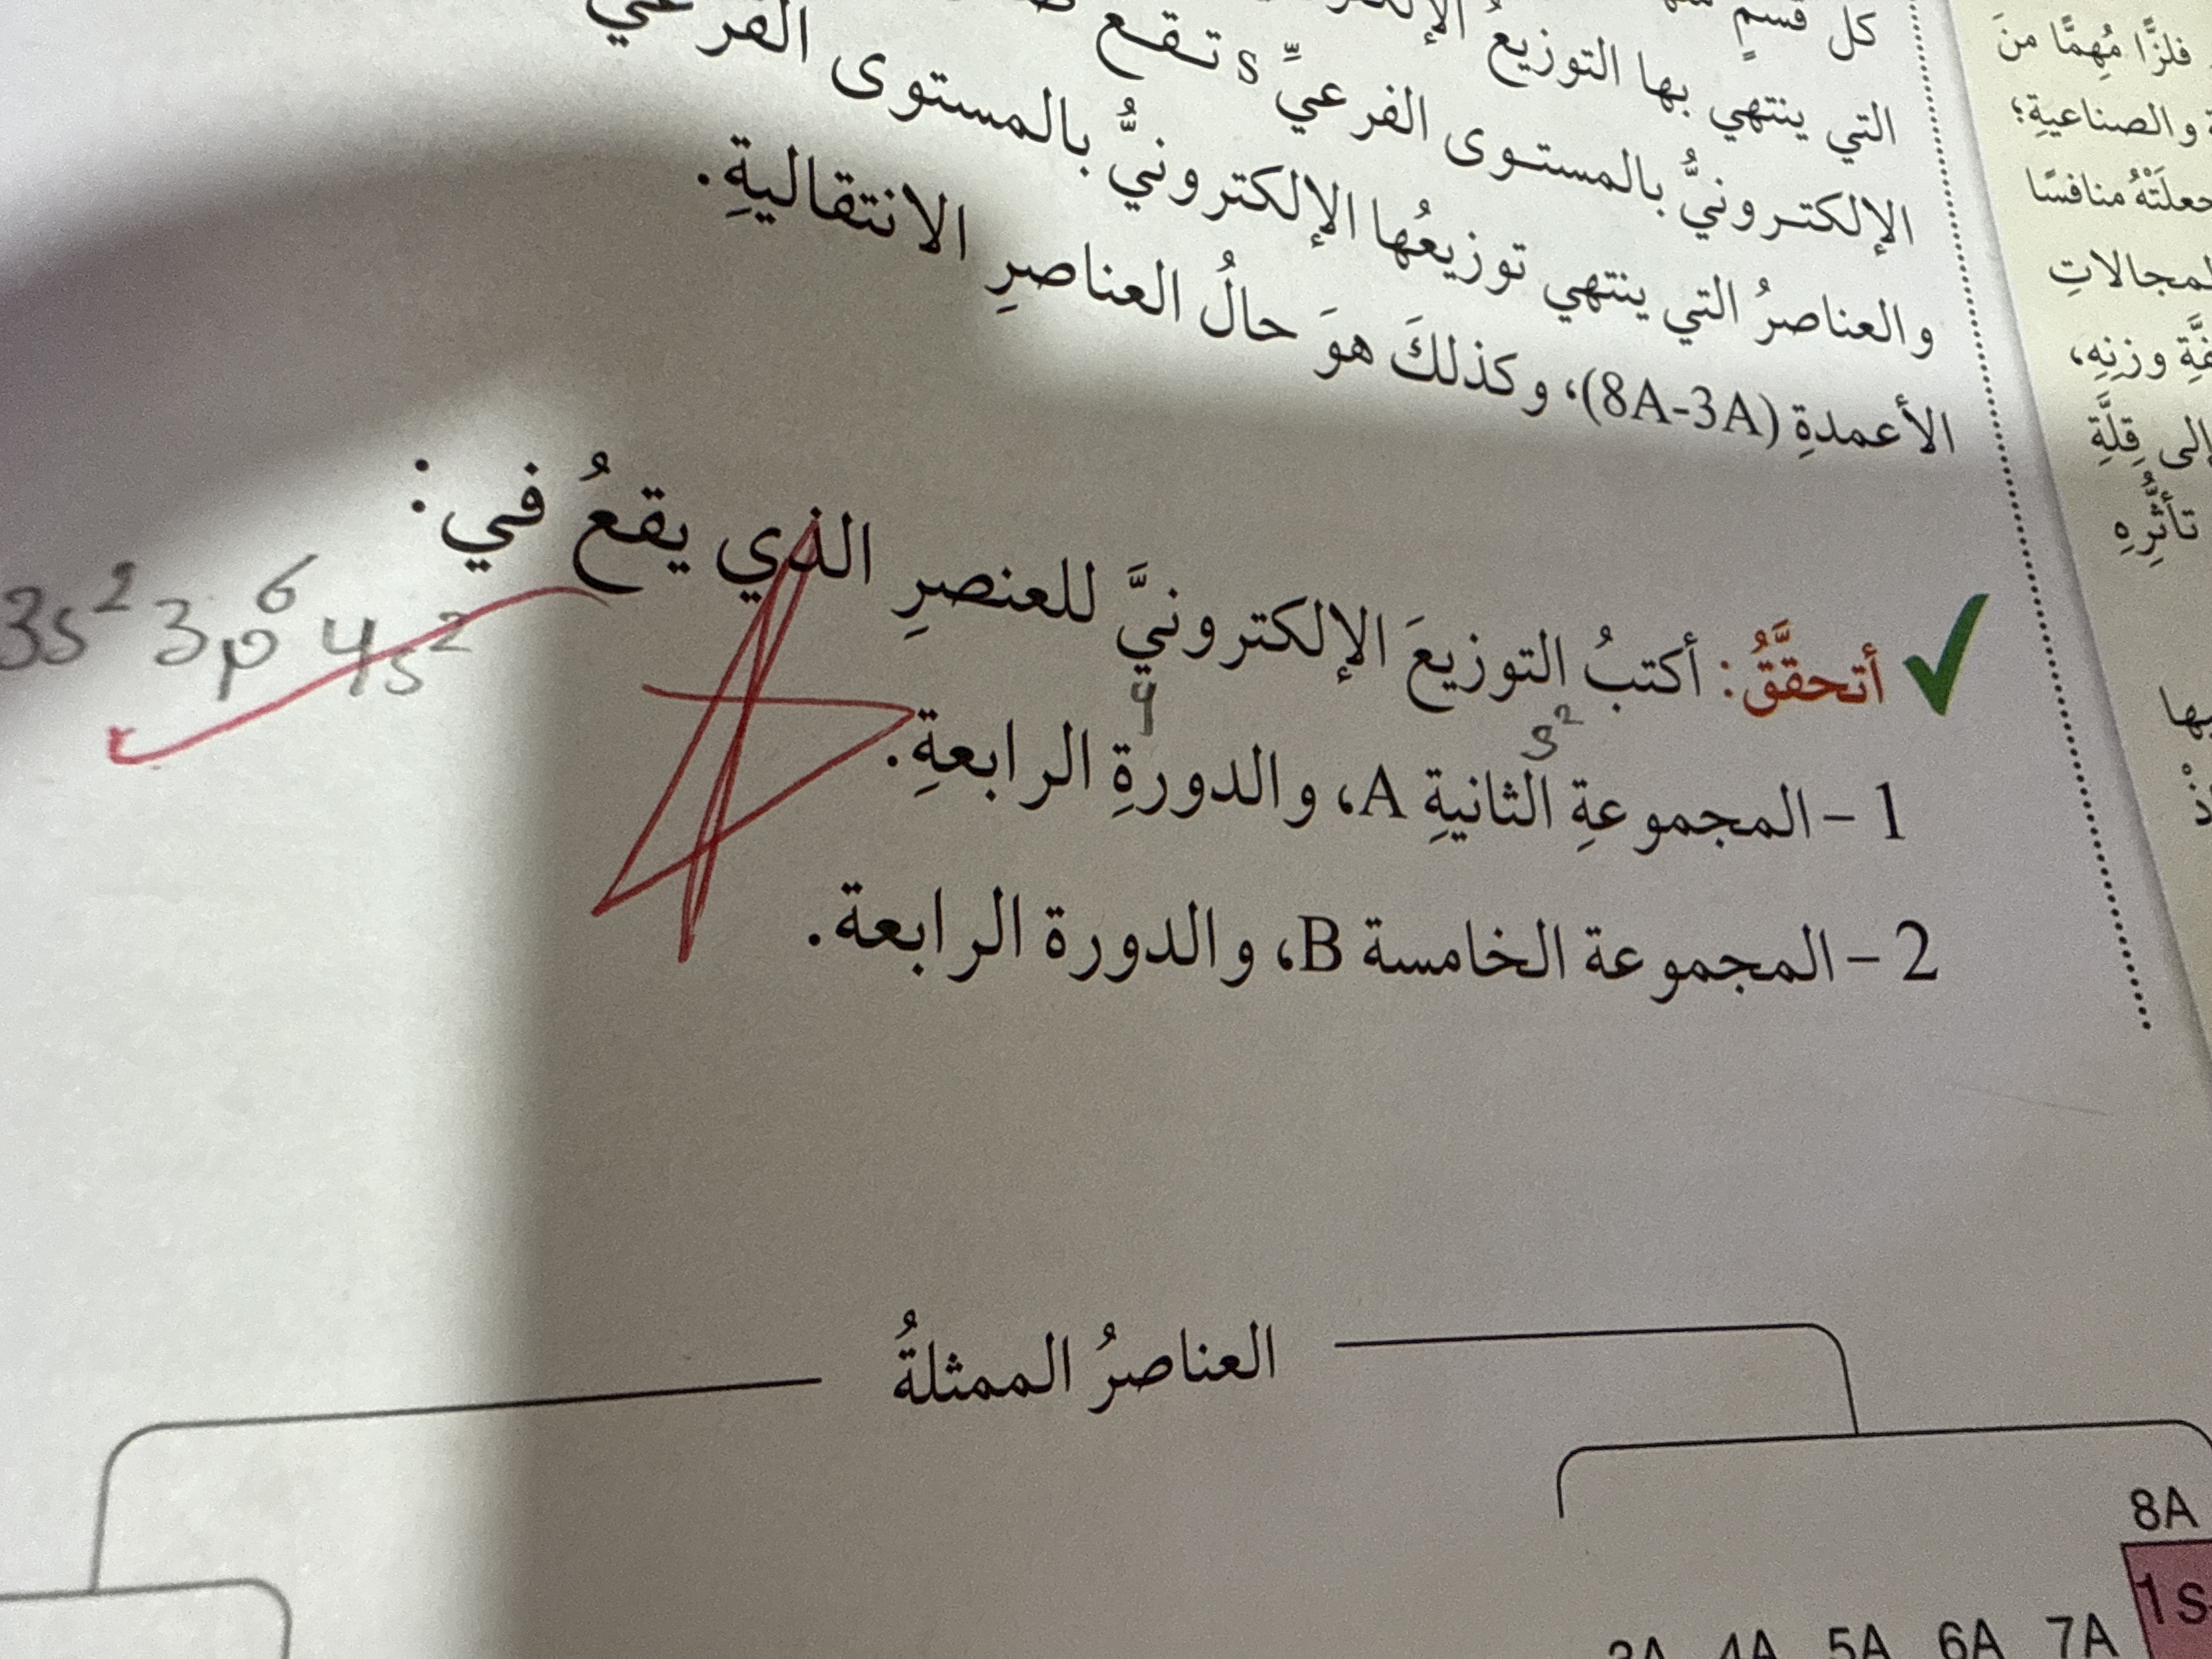 كل قسمٍ
التي ينتهي بها التوزيعُ
الإلكترونيُّ بالمستوى الفرعيِّ s تقع
والعناصرُ التي ينتهي توزيعُها الإلكترونيُّ بالمستوى الفرعي
الأعمدةِ (8A-3A)، وكذلكَ هوَ حالُ العناصرِ الانتقاليةِ.
أتحقَّقُ: أكتبُ التوزيعَ الإلكترونيَّ للعنصرِ الذي يقعُ في:
3s² 3p⁶ 4s²
s² 4
1 - المجموعةِ الثانيةِ A، والدورةِ الرابعةِ.
2 - المجموعة الخامسة B، والدورة الرابعة.
العناصرُ الممثلةُ
8A
3A 4A 5A 6A 7A
1s
فلزًّا مُهِمًّا منَ
والصناعيةِ؛
جعلَتْهُ منافسًا
المجالاتِ
وزنِهِ،
إلى قِلَّةِ
تأثُّرِهِ